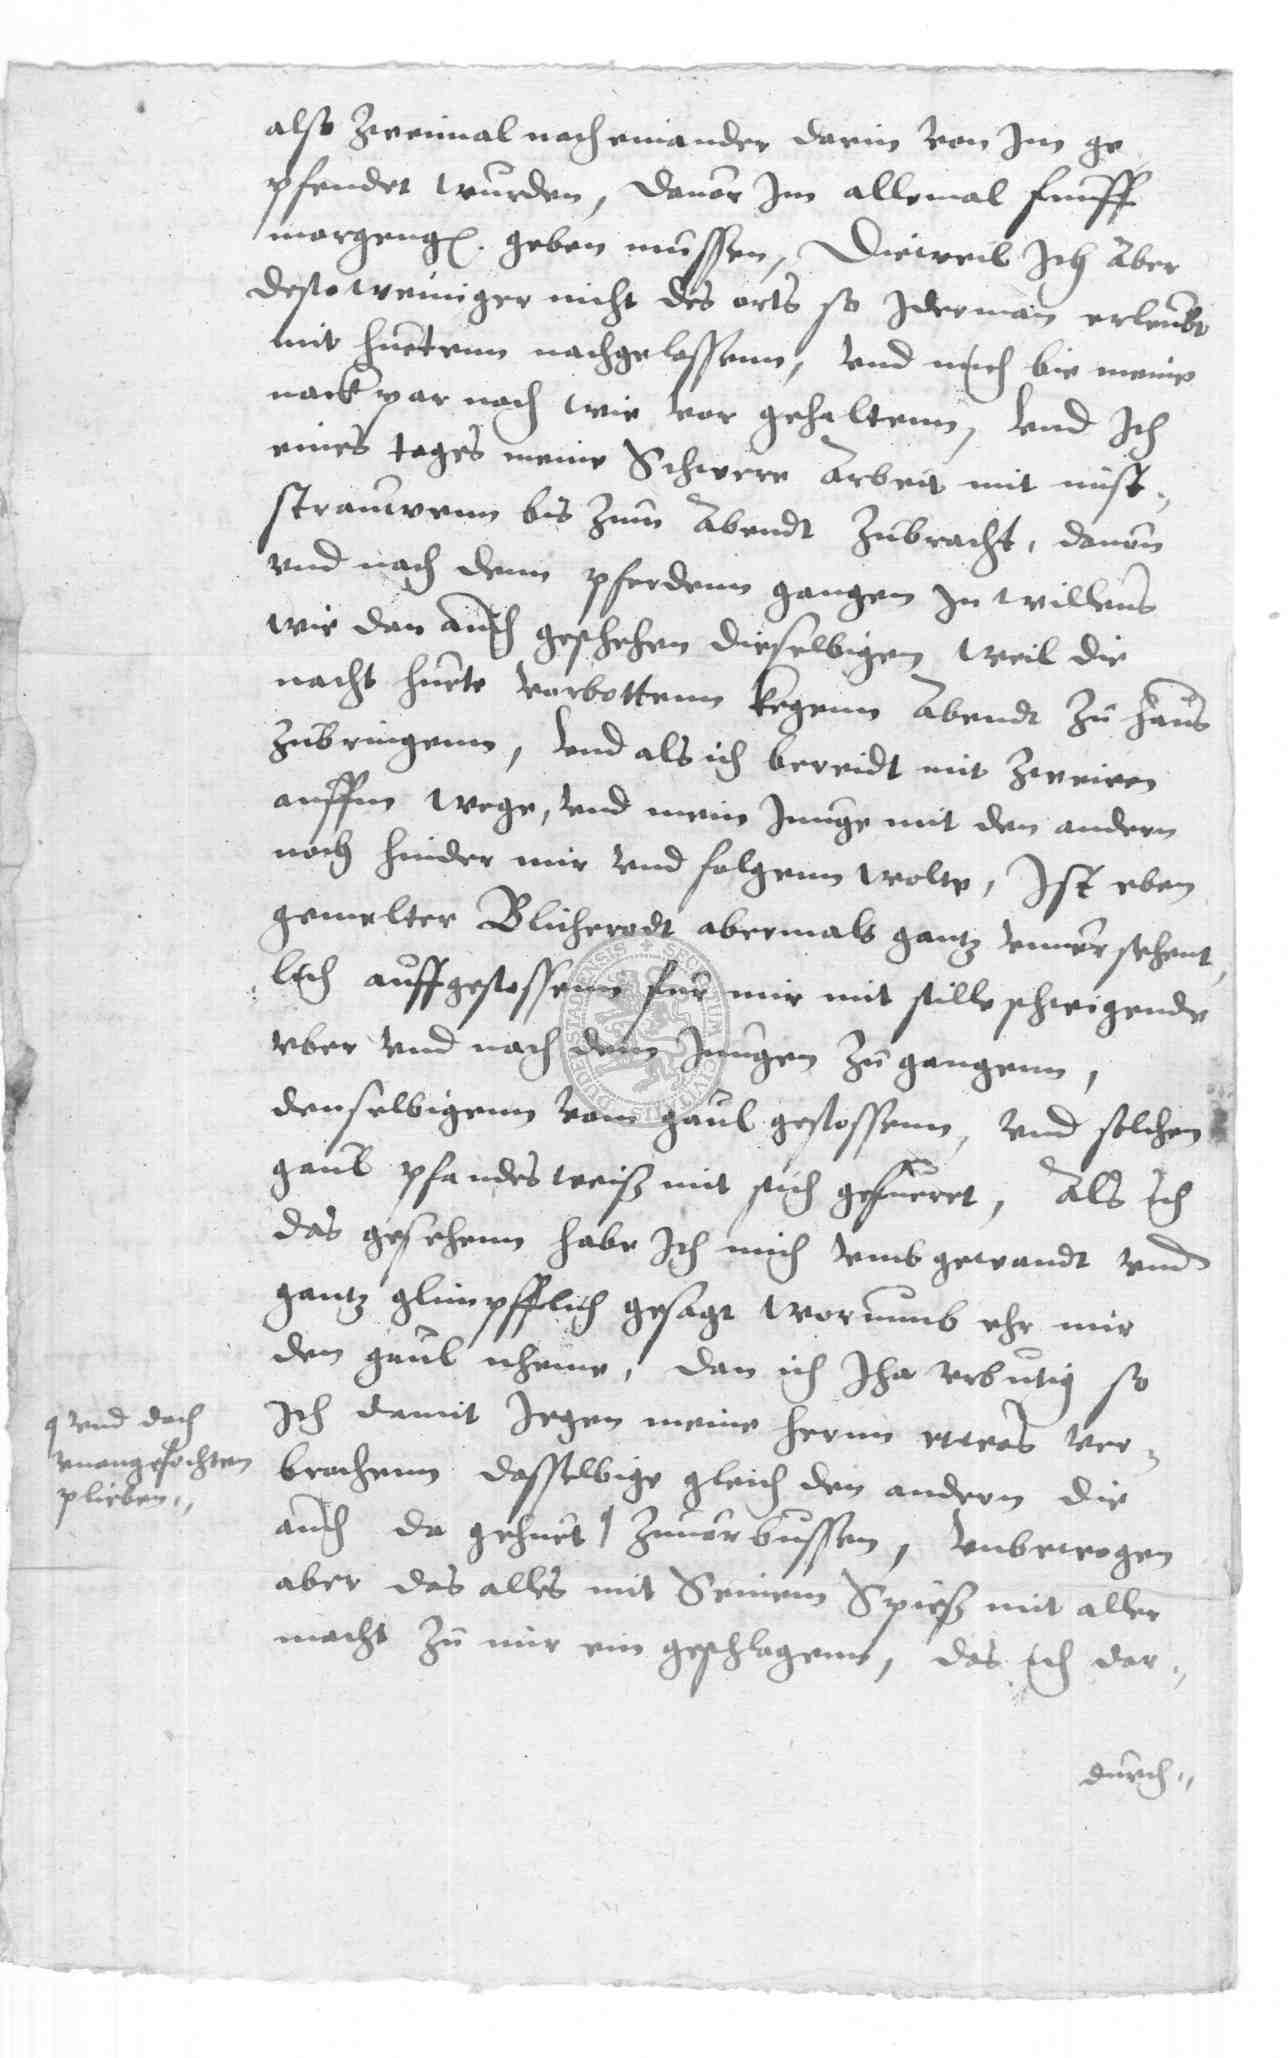 also zweimal nach einander darin von Im ge
pfendet wurden, dauor Im allemal funff
morgeng. geben mussen, Dieweil Ich aber
destoweiniger nicht des orts so Iderman erleubt
mit huetenn nachgelassenn, vnd mich bie meine
nackpar nach wie vor gehaltenn, vnd Ich
eines tages meine Schwere Arbeit mit mist,,
strauwenn bis zum Abendt zubracht, dauon
vnd nach denn pferdenn gangen In willens
wie dan auch geschehen dieselbigen weil die
nacht huete vorbottenn kegenn Abendt zu haus
zubringenn, vnd als ich bereidt mit zweien
auffm wege, vnd mein Junge mit den andern
noch hinder mir vnd folgenn wolte, Ist eben
gemelter Blicherodt abermals gantz vnuorsehent,
lich auffgestossenn fur mir mit stilleschweigende
vber vnd nach dem Jungen zu gangenn,
denselbigenn vom gaul gestossenn, vnd solchen
gaul pfandesweiß mit sich gefueret, Als ich
das gesehenn habe Ich mich vmbgewandt vnd
gantz glimpfflich gesagt worumb ehr mir
den gaul nheme, dan ich Jha erbutig so
Ich damit Jegen meine hernn etwas ver,,
brochenn dasselbige gleich den andern die
auch da gehuet zuuorbussen, vnbewogen
aber das alles mit Seinem Spieß mit aller
macht zu mir ein geschlagenn, das ich dar,,
durch,,
vnd doch
vnangefochten
plieben,,
SIGILLUM CIVITATIS DUDERSTADENSIS